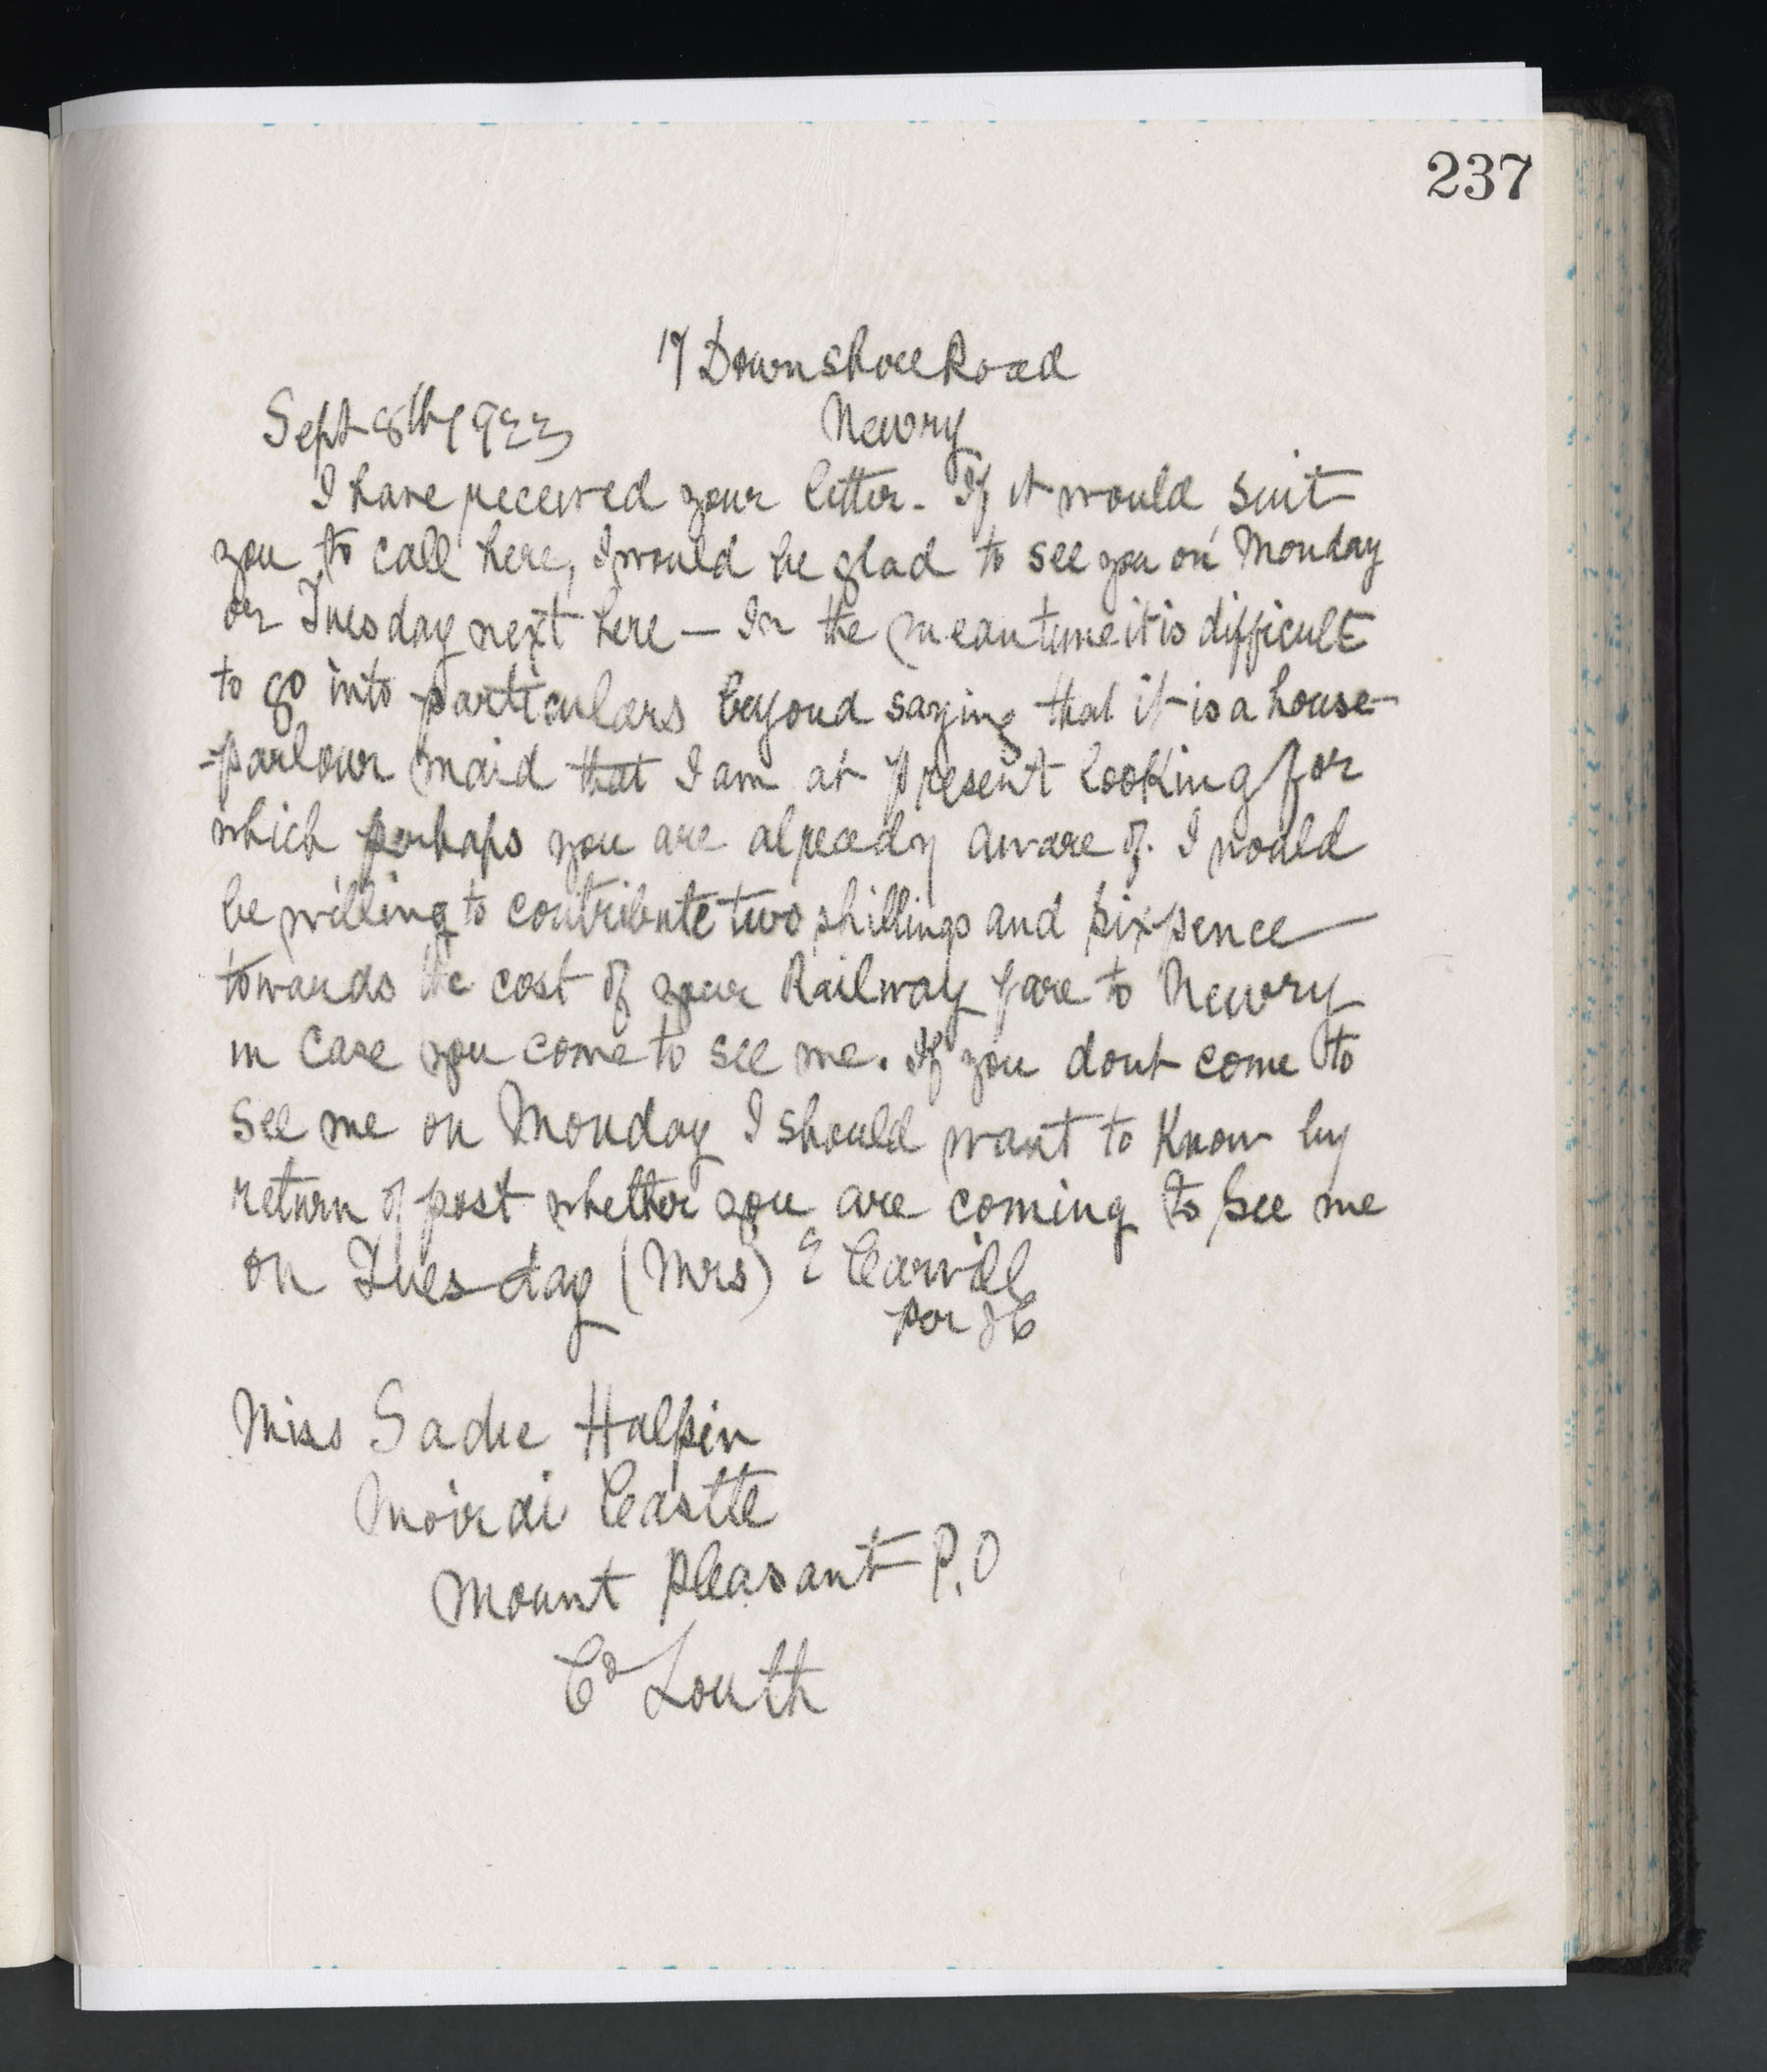 237
17 Downshire Road
Sept 8th 1923 Newry
I have received your letter. If it would suit
you to call here, I would be glad to see you on Monday
or Tuesday next here — In the meantime it is difficult
to go into particulars beyond saying that it is a house-
-parlour maid that I am at present looking for
which perhaps you are already aware of. I would
be willing to contribute two shillings and sixpence
towards the cost of your Railway fare to Newry
in case you come to see me. If you dont come to
see me on Monday I should want to know by
return of post whether you are coming to see me
on Tuesday (Mrs) E Carvill
per JC
Miss Sadie Halpin
Castle
Mount Pleasant P.O
Co Louth